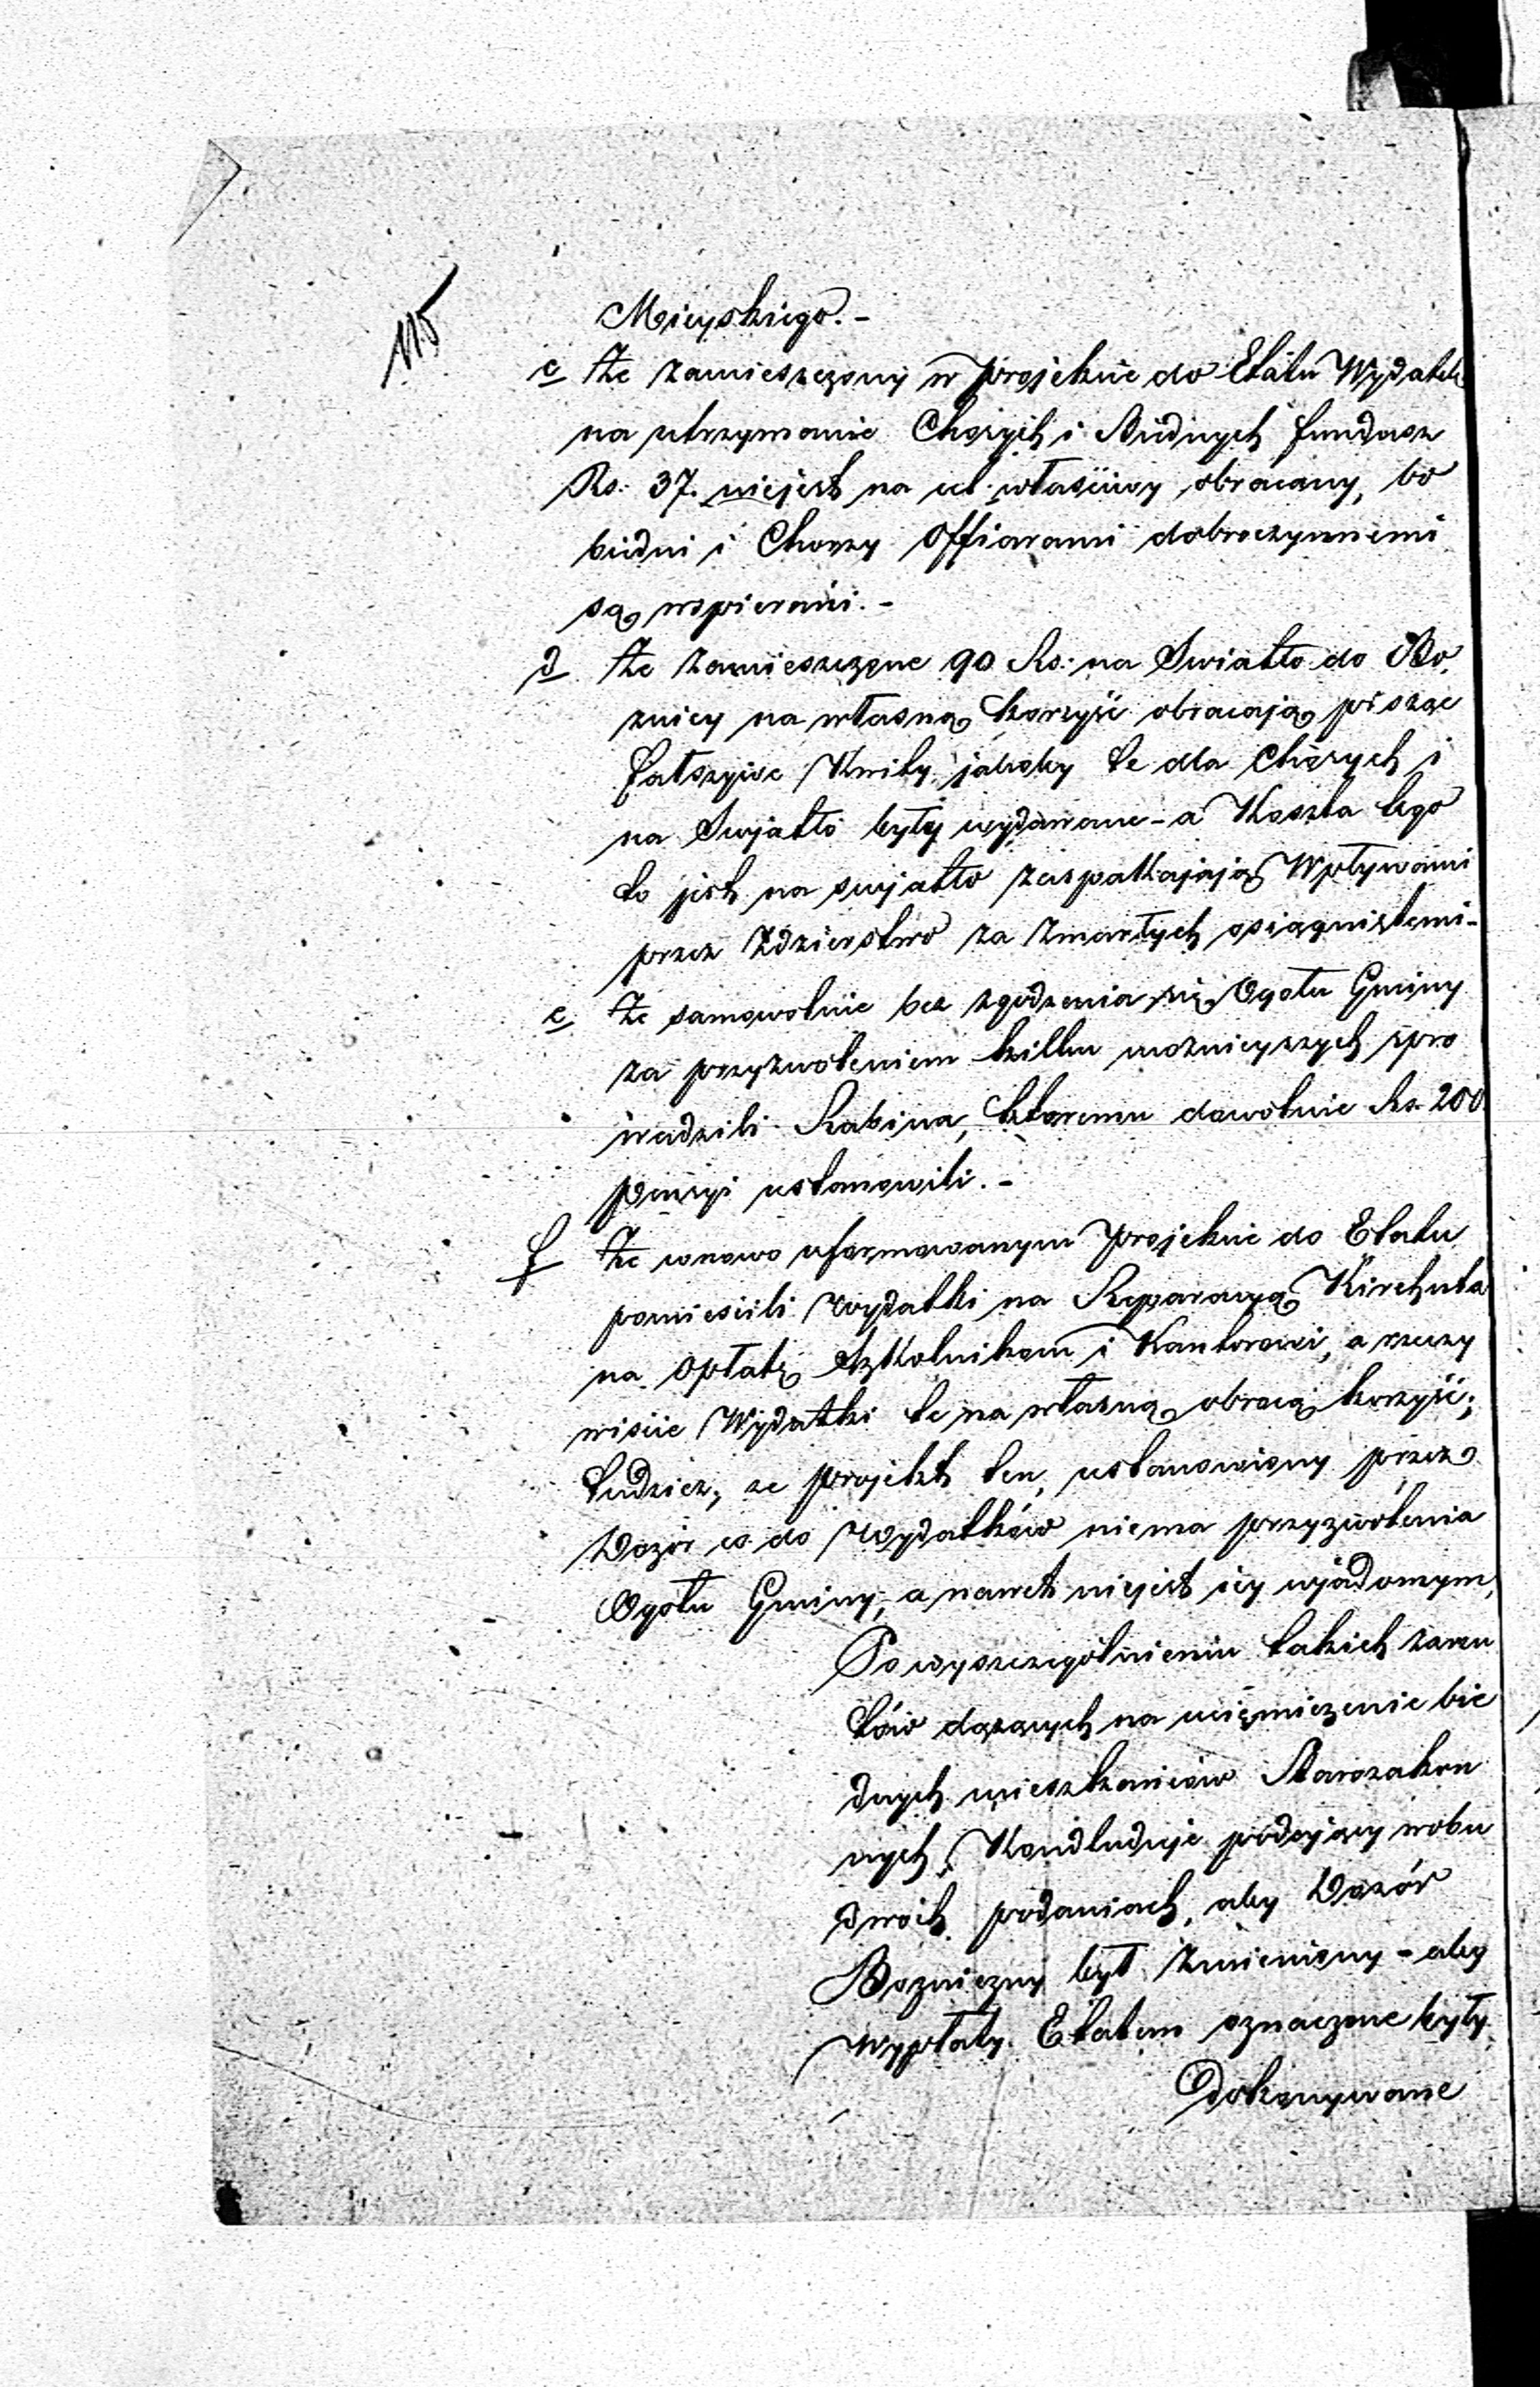 115
Mieyskiego. -
c że zamieszczony w projekcie do Etatu Wydatek
na utrzymanie Chorych i Biednych fundusz
Rs. 37. niejest na cel właściwy obracany, bo
biedni i Chorzy Offiarami dobroczynnemi
są wspierani. -
d że zamieszczone 90 Rs. na Swiatło do Bo
żnicy na własną korzyść obracają pisząc
fałszywe Kwity jakoby te dla Chorych i
na Swjatło były wydawane - a Koszta tego
to jest na swjatło zaspakajają Wpływami
przez Zdzierstwo za Zmarłych osiągniętemi -
e że samowolnie bez zgodzenia się Ogołu Gminy
za przyzwoleniem kilku możnieyszych spro
wadzili Rabina, ktoremu dowolnie Rs. 200.
pensyi ustanowili. -
f że wnowo uformowanym projekcie do Etatu
pomieścili wydatki na Reparacyą Kirchuta
na opłatę Szkolnikom i Kantorowi, a rzeczy
wiście Wydatki te na własną obrocą korzyść;
tudzież, że projekt ten, ustanowiony przez
Dozór co do wydatków niema przyzwolenia
Ogołu Gminy, a nawet niejest jey wjadomym,
Po wyszczególnieniu takich zarzu
tów dążących na uciemiężenie bie
dnych mieszkańców Starozakon
nych, Konkluduje podający wobu
dwoch podaniach, aby Dozór
Bożniczny był zmieniony - aby
wypłaty Etatem oznaczone były
Dokonywane